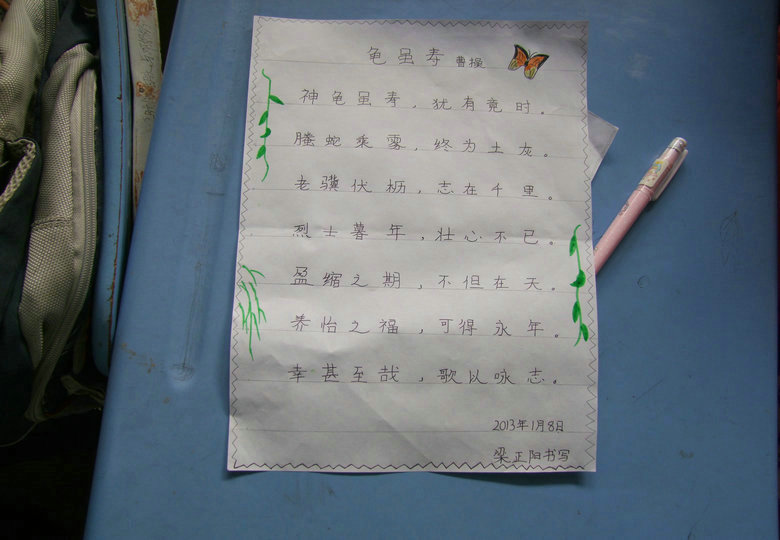 龟虽寿 曹操
神龟虽寿，犹有竟时。
腾蛇乘雾，终为土灰。
老骥伏枥，志在千里。
烈士暮年，壮心不已。
盈缩之期，不但在天。
养怡之福，可得永年。
幸甚至哉，歌以咏志。
2013年1月8日
梁正阳书写